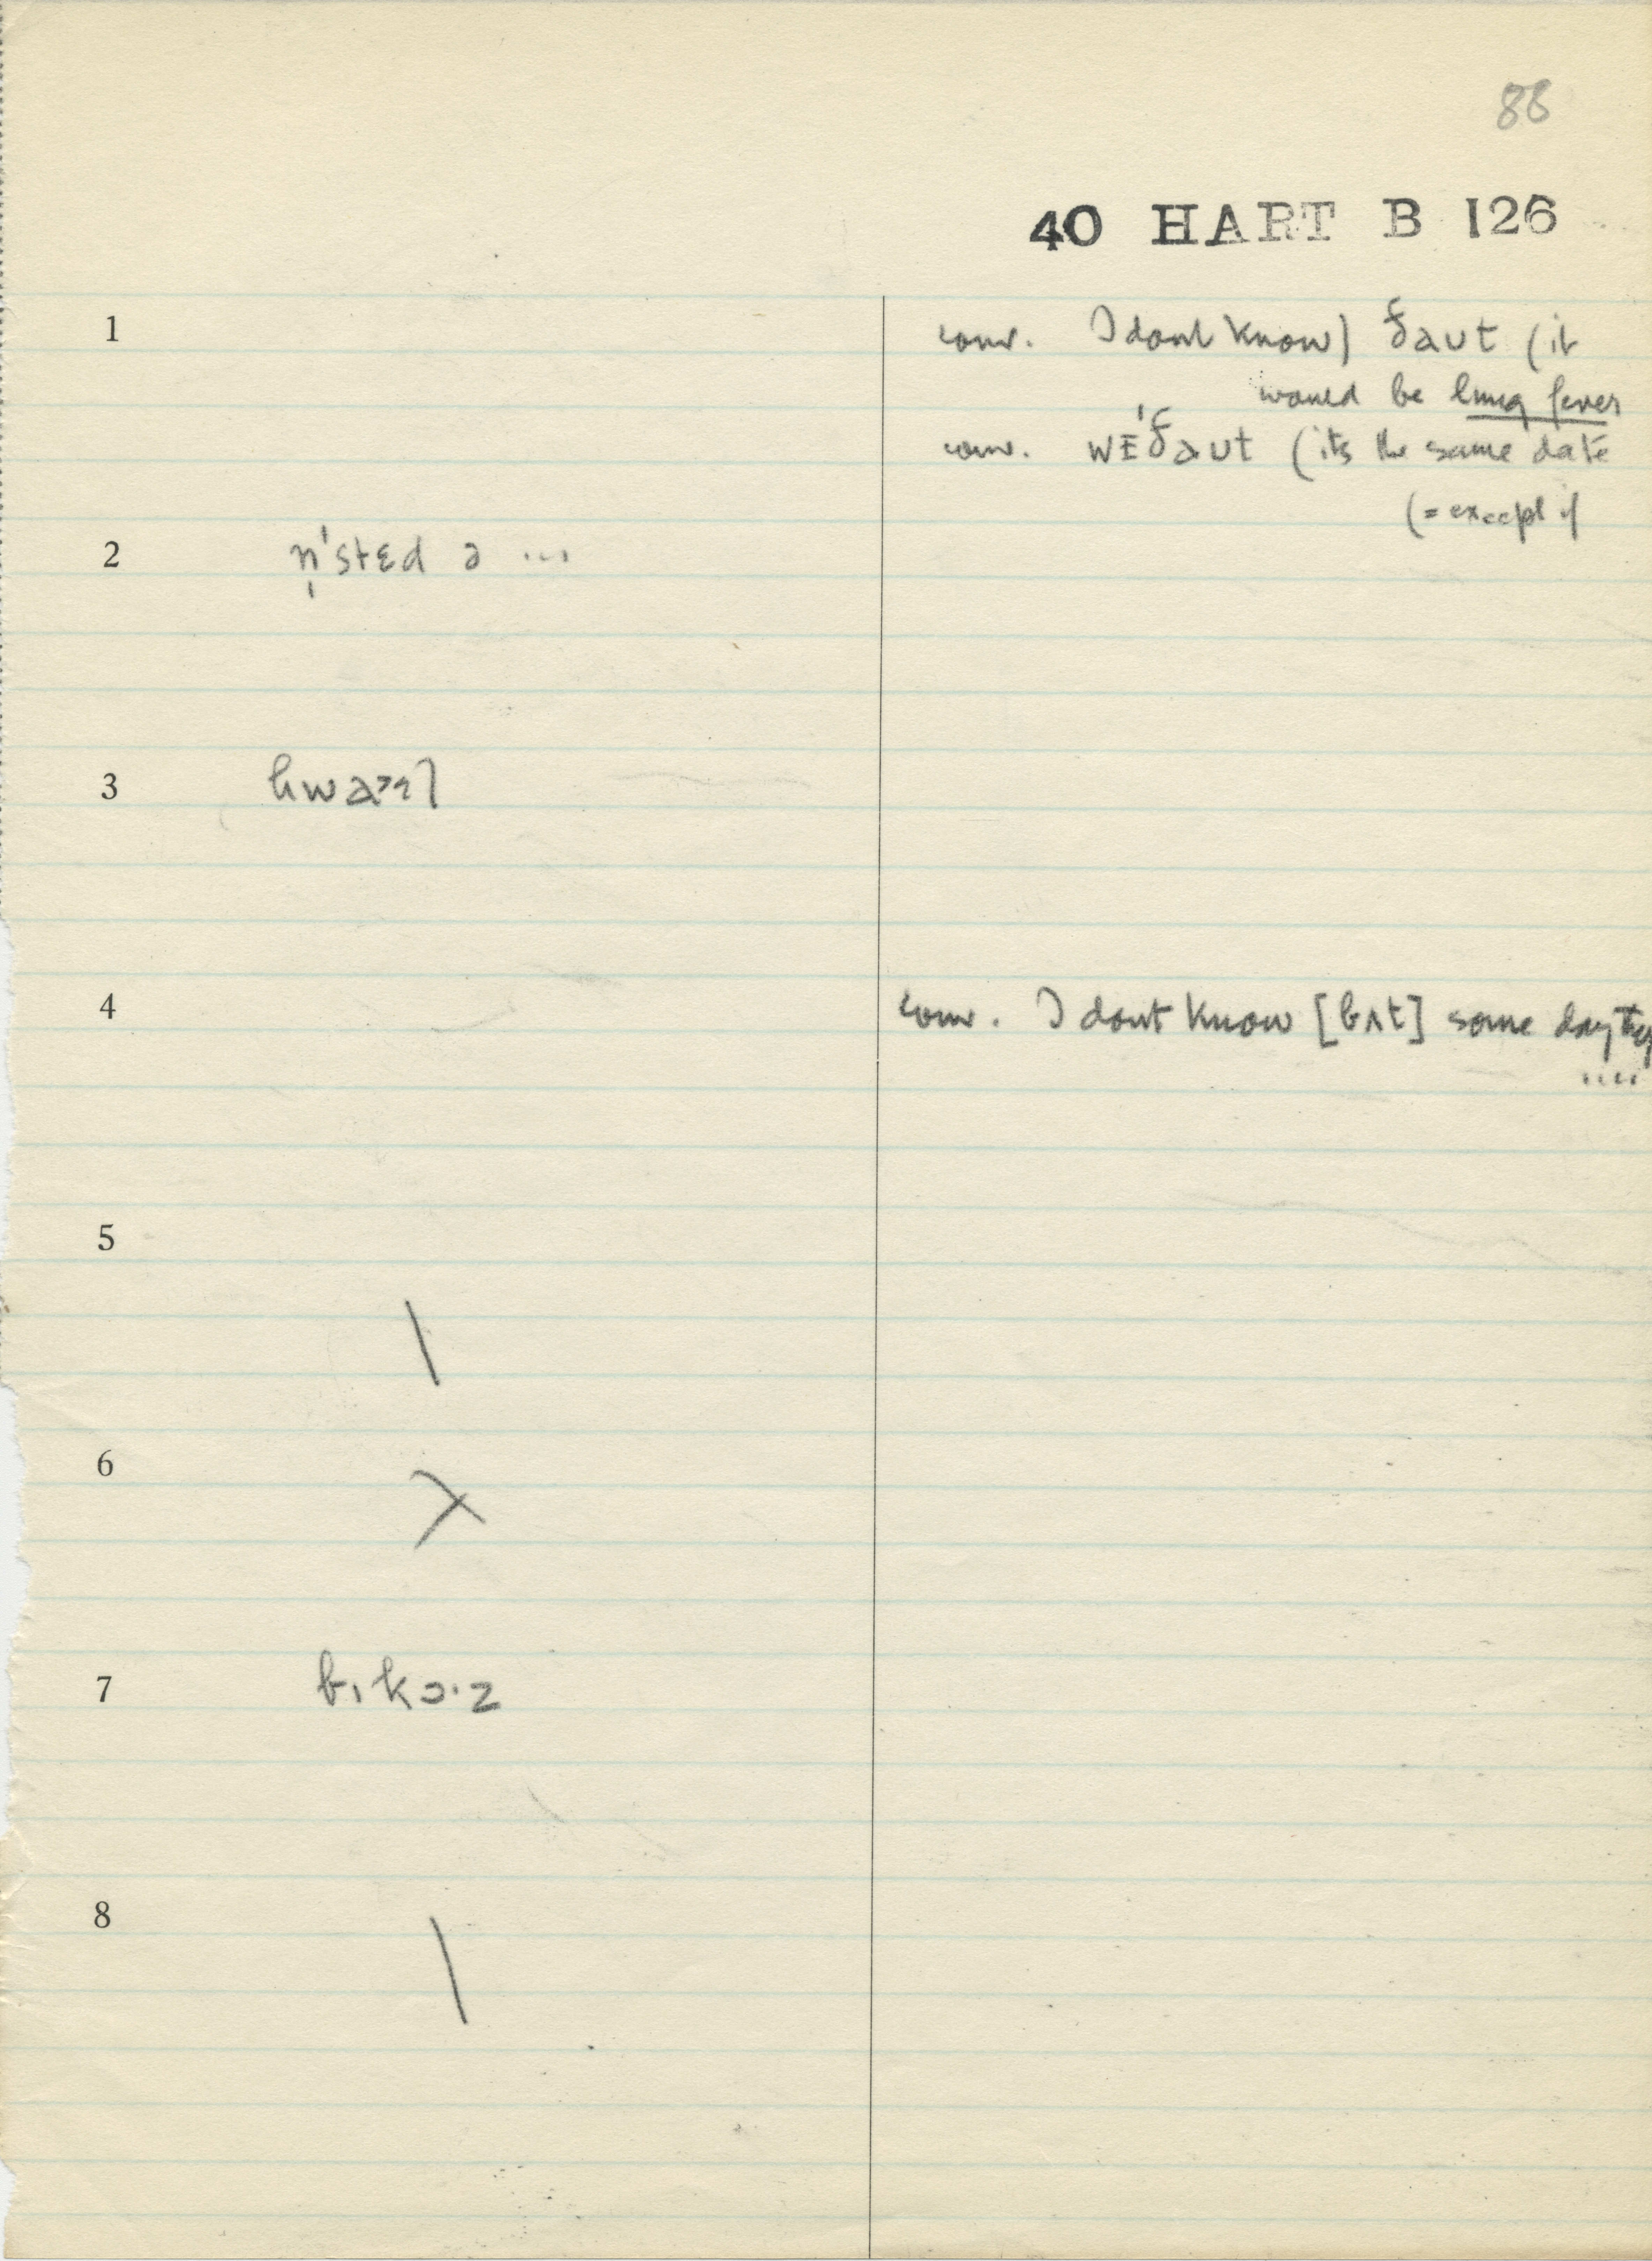 88
40 HART B 126
1 conv. I dont know) ðaut (it
would be lung fever
conv. wɪˈðaut (its the same date
(= except if
2 n̩ˈstɛd ə ...
3 hwaɪl
4 conv. I dont know [bʌt] some day they
....
5
\
6
7 bɪkɔ·z
8
\